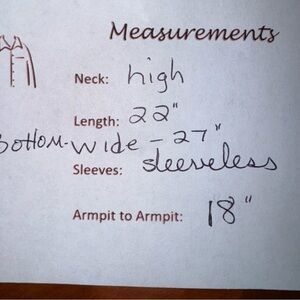 Measurements
Neck: high
Length: 22"
Bottom-wide - 27"
Sleeves: sleeveless
Armpit to Armpit: 18"